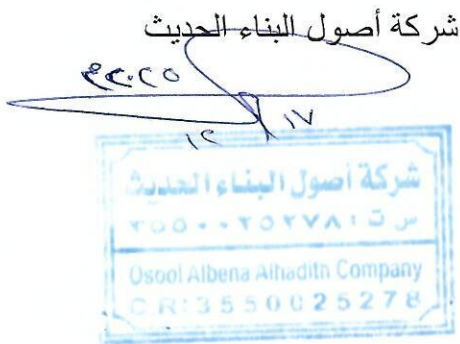 شركة أصول البناء الحديث
٢٠٢٥م
١٢
١٧
شركة أصول البناء الحديث
س ت : ٣٥٥٠٠٢٥٢٧٨
Osool Albena Alhadith Company
C.R: 3550025278